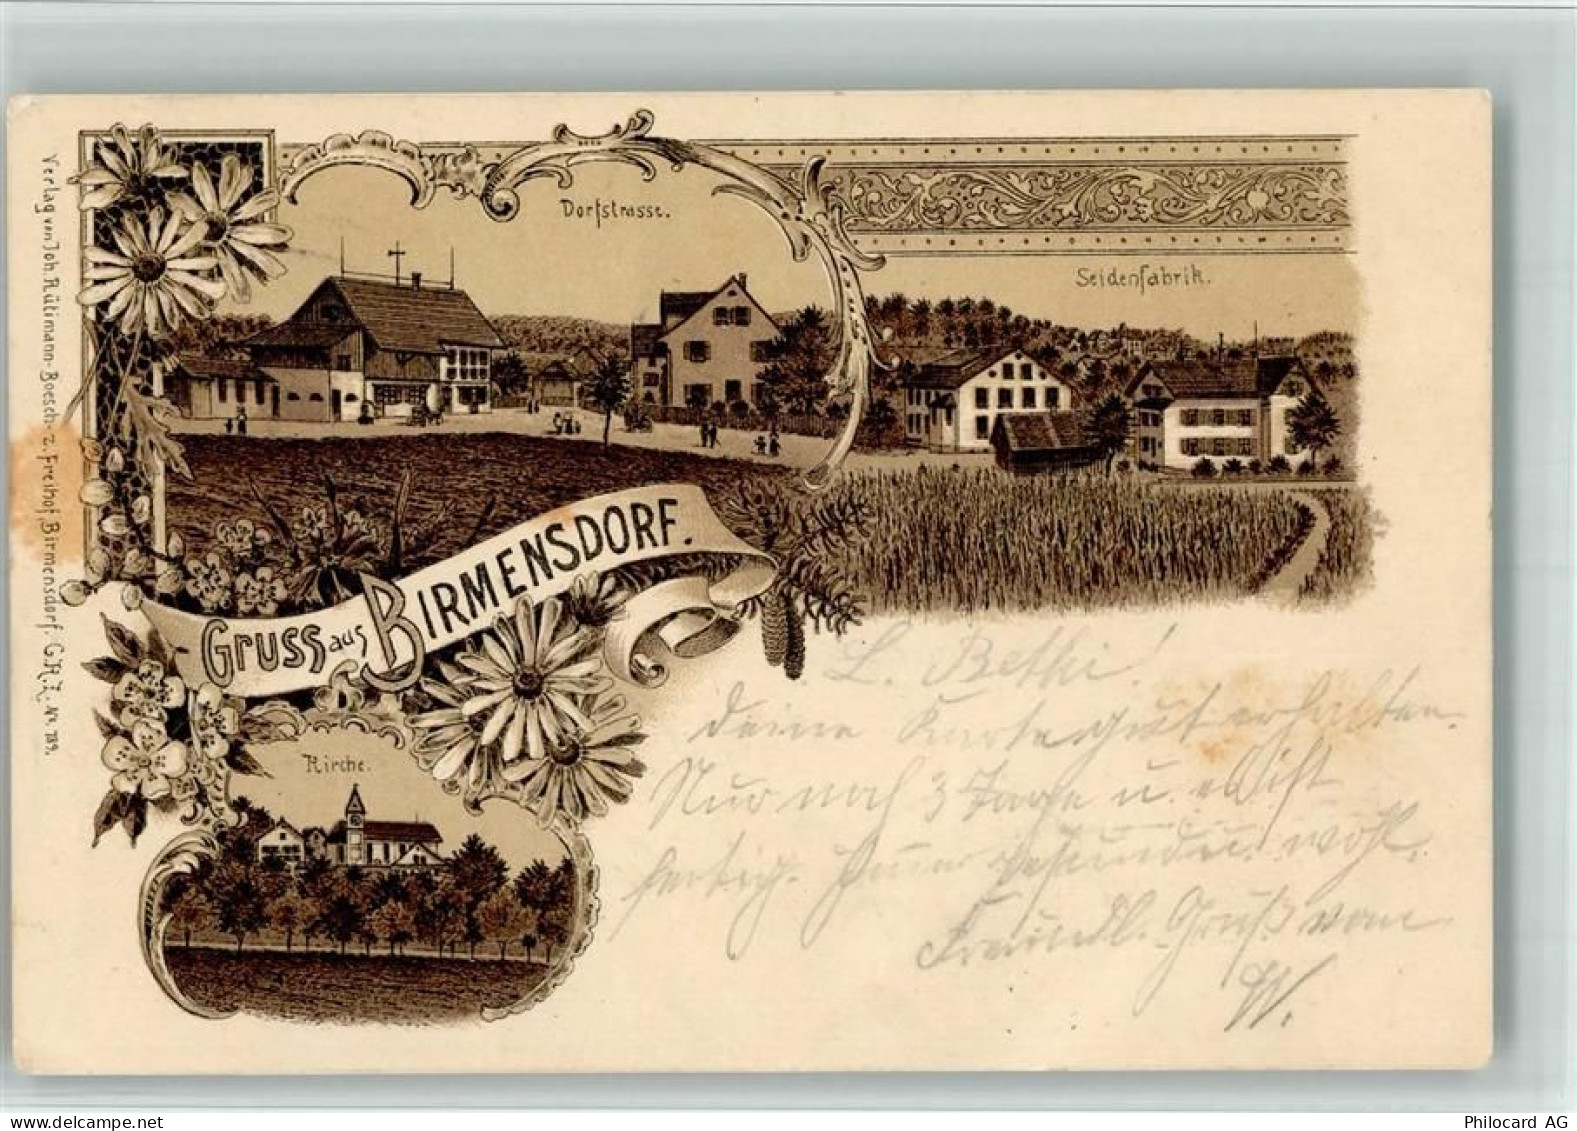 Verlag von Joh. Rütimann-Boesch z. Freihof, Birmensdorf. G.A.Z. No. 789.
Dorfstrasse.
Seidenfabrik.
GRUSS aus BIRMENSDORF.
Kirche.
L. Bethi!
deine Karte gut erhalten.
Nur noch 3 Tage u. ist
fertig. wohl.
Freundl. Gruß vom
W.
Philocard AG